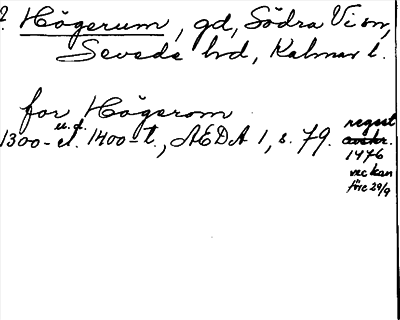 ? Högerum, gd, Södra Vi sn,
Sevede hd, Kalmar l.
for Högerom
1300- el. 1400-t., AEDA 1, s. 79.
u. d.
regest
avskr.
1476
veckan
före 29/9